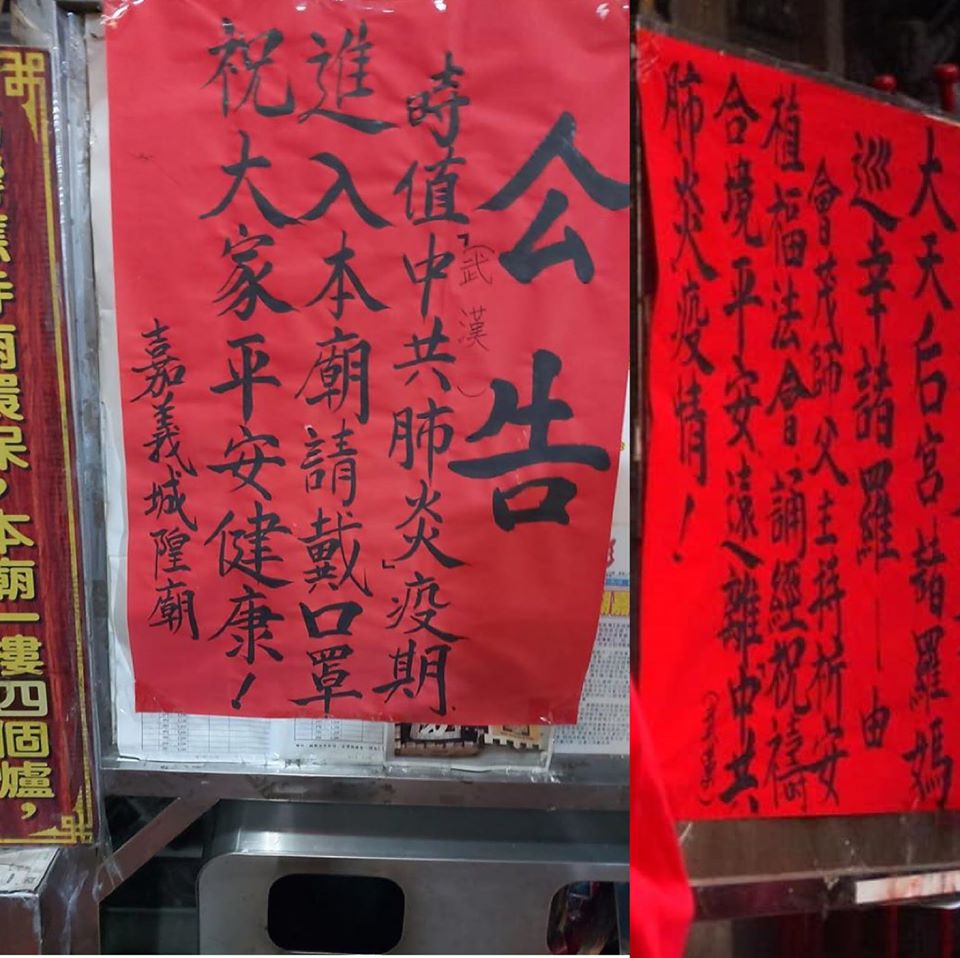 環保，本廟一樓四個爐，
公告
（武漢）
時值「中共肺炎」疫期
進入本廟請戴口罩
祝大家平安健康！
嘉義城隍廟
大天后宮諸羅媽
巡幸諸羅——由
會茂師父主持祈安
植福法會誦經祝禱
合境平安遠離中共
肺炎疫情！